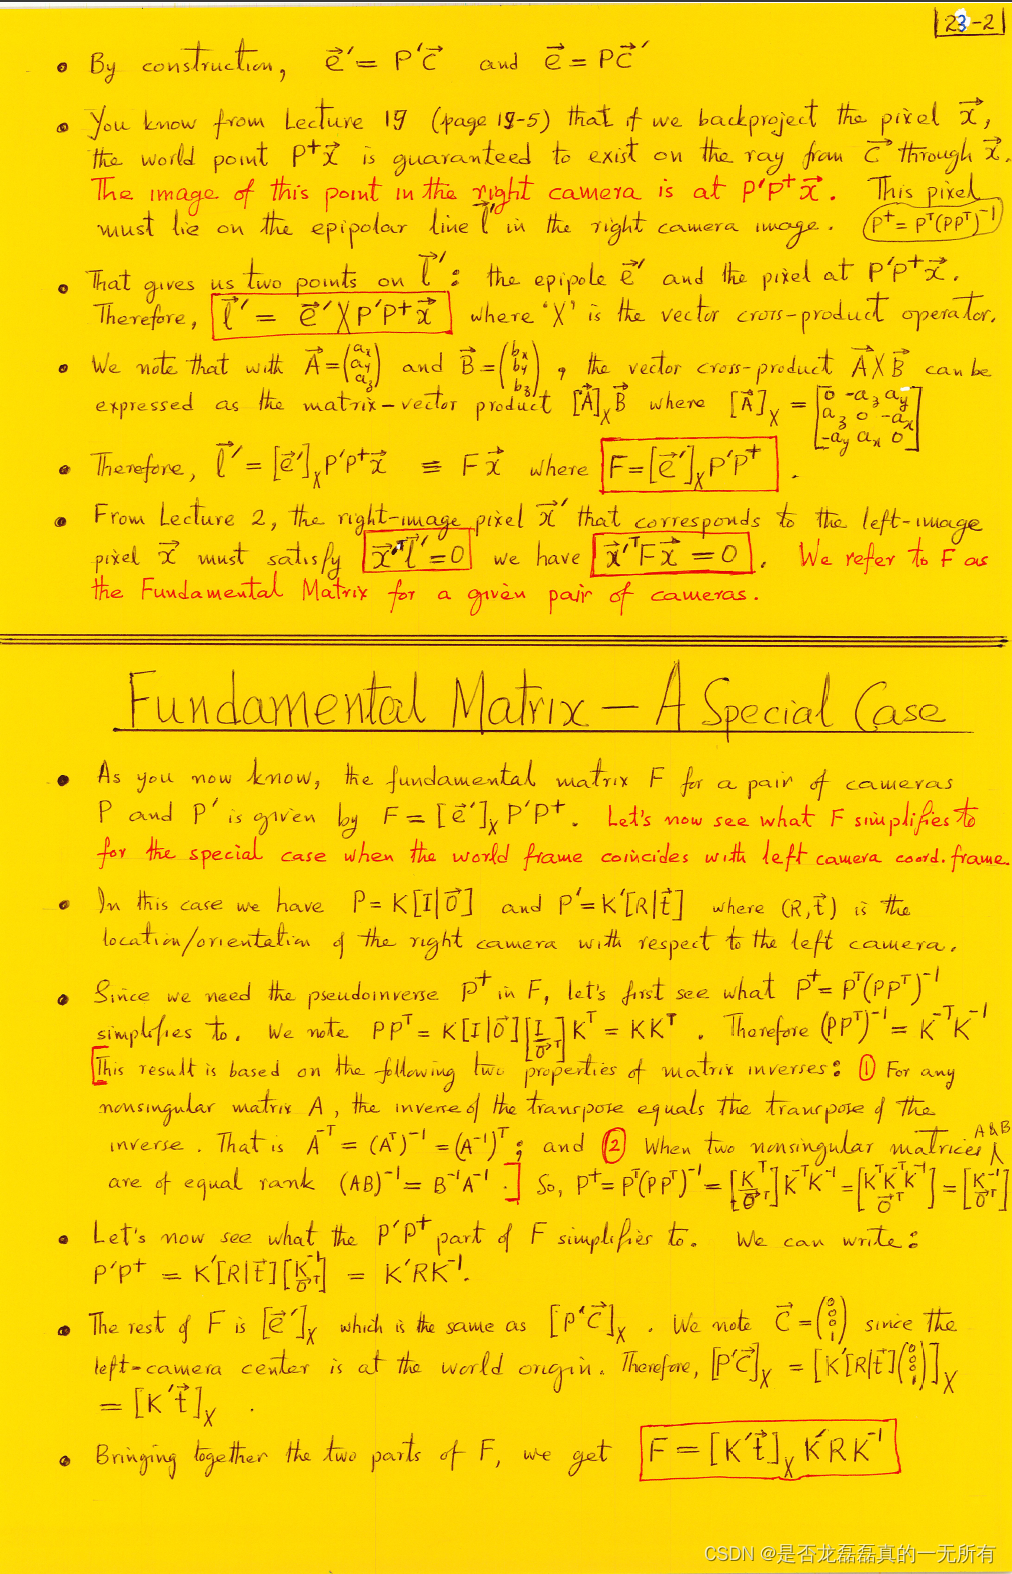 23-2
• By construction, e⃗′ = P′C⃗ and e⃗ = PC⃗′
• You know from Lecture 19 (page 19-5) that if we backproject the pixel x⃗,
the world point P⁺x⃗ is guaranteed to exist on the ray from C⃗ through x⃗.
The image of this point in the right camera is at P′P⁺x⃗. This pixel
must lie on the epipolar line l⃗′ in the right camera image. (P⁺ = Pᵀ(PPᵀ)⁻¹)
• That gives us two points on l⃗′: the epipole e⃗′ and the pixel at P′P⁺x⃗.
Therefore, l⃗′ = e⃗′ X P′P⁺x⃗ where 'X' is the vector cross-product operator.
• We note that with A⃗ = (aₓ a_y a_z) and B⃗ = (bₓ b_y b_z), the vector cross-product A⃗XB⃗ can be
expressed as the matrix-vector product [A⃗]ₓB⃗ where [A⃗]ₓ = [0 -a_z a_y; a_z 0 -aₓ; -a_y aₓ 0]
• Therefore, l⃗′ = [e⃗′]ₓP′P⁺x⃗ ≡ Fx⃗ where F = [e⃗′]ₓP′P⁺.
• From Lecture 2, the right-image pixel x⃗′ that corresponds to the left-image
pixel x⃗ must satisfy x⃗′ᵀl⃗′ = 0 we have x⃗′ᵀFx⃗ = 0. We refer to F as
the Fundamental Matrix for a given pair of cameras.
Fundamental Matrix — A Special Case
• As you now know, the fundamental matrix F for a pair of cameras
P and P′ is given by F = [e⃗′]ₓP′P⁺. Let's now see what F simplifies to
for the special case when the world frame coincides with left camera coord. frame.
• In this case we have P = K[I|0⃗] and P′ = K′[R|t⃗] where (R, t⃗) is the
location/orientation of the right camera with respect to the left camera.
• Since we need the pseudoinverse P⁺ in F, let's first see what P⁺ = Pᵀ(PPᵀ)⁻¹
simplifies to. We note PPᵀ = K[I|0⃗][I / 0⃗ᵀ]Kᵀ = KKᵀ. Therefore (PPᵀ)⁻¹ = K⁻ᵀK⁻¹
[This result is based on the following two properties of matrix inverses: ① For any
nonsingular matrix A, the inverse of the transpose equals the transpose of the
inverse. That is A⁻ᵀ = (Aᵀ)⁻¹ = (A⁻¹)ᵀ; and ② When two nonsingular matrices A & B
are of equal rank (AB)⁻¹ = B⁻¹A⁻¹.] So, P⁺ = Pᵀ(PPᵀ)⁻¹ = [Kᵀ / 0⃗ᵀ]K⁻ᵀK⁻¹ = [KᵀK⁻ᵀK⁻¹ / 0⃗ᵀ] = [K⁻¹ / 0⃗ᵀ]
• Let's now see what the P′P⁺ part of F simplifies to. We can write:
P′P⁺ = K′[R|t⃗][K⁻¹ / 0⃗ᵀ] = K′RK⁻¹.
• The rest of F is [e⃗′]ₓ which is the same as [P′C⃗]ₓ. We note C⃗ = (0 0 0 1) since the
left-camera center is at the world origin. Therefore, [P′C⃗]ₓ = [K′[R|t⃗](0 0 0 1)]ₓ
= [K′t⃗]ₓ.
• Bringing together the two parts of F, we get F = [K′t⃗]ₓK′RK⁻¹
CSDN @是否龙磊磊真的一无所有